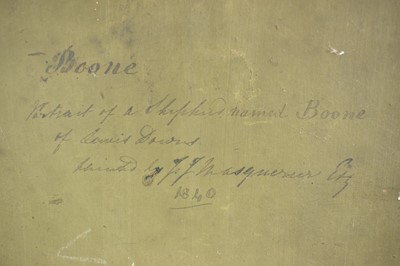 Boone
Portrait of a Shepherd named Boone
of Lewis Downs
painted by J. J. Masquerier Esq
1840